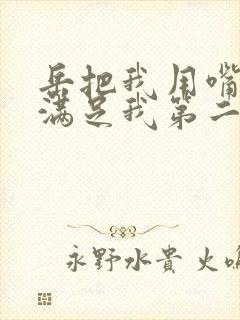 岳把我用嘴
满足我第二
永野水貴 火